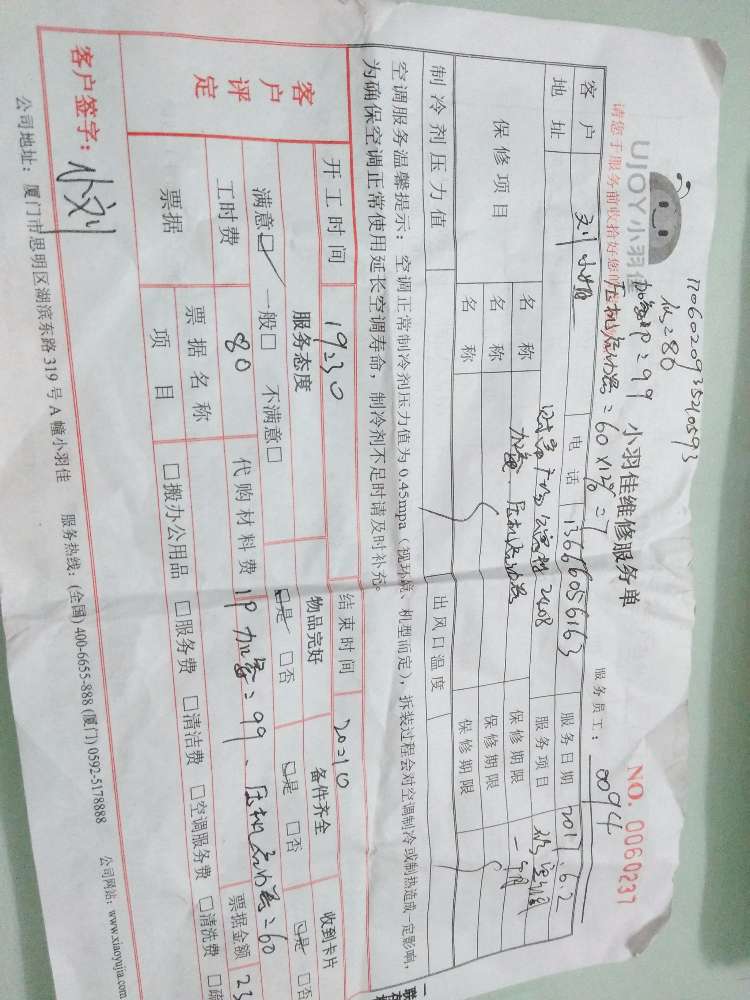 17060209352105​93
修=80
加氟1P=99
压机启动器=60×12%=7
UJOY小羽佳
请您于服务前收拾好您的
小羽佳维修服务单
NO. 0060237
服务员工: 0094
客户 刘小姐 电话 13666056163 服务日期 2017.6.2
地址 2408 服务项目
保修项目 名称 加氟 压机启动器 保修期限 一个月
名称 保修期限
名称 保修期限
制冷剂压力值 出风口温度
空调服务温馨提示：空调正常制冷剂压力值为0.45mpa（视环境、机型而定），拆装过程会对空调制冷或制热造成一定影响，
为确保空调正常使用延长空调寿命，制冷剂不足时请及时补充。
开工时间 19:30 结束时间 20:10
客户评定 服务态度 物品完好 备件齐全 收到卡片
满意☑ 一般□ 不满意□ ☑是 □否 ☑是 □否 ☑是 □否
工时费 80 代购材料费 1P加氟=99、压机启动器=60
票据 票据名称 票据金额 23
项目 □搬办公用品 □服务费 □清洁费 □空调服务费 □清洗费 □疏
客户签字：小刘
公司地址：厦门市思明区湖滨东路319号A幢小羽佳 服务热线：(全国) 400-6655-888 (厦门) 0592-5178888 公司网站：www.xiaoyujia.com